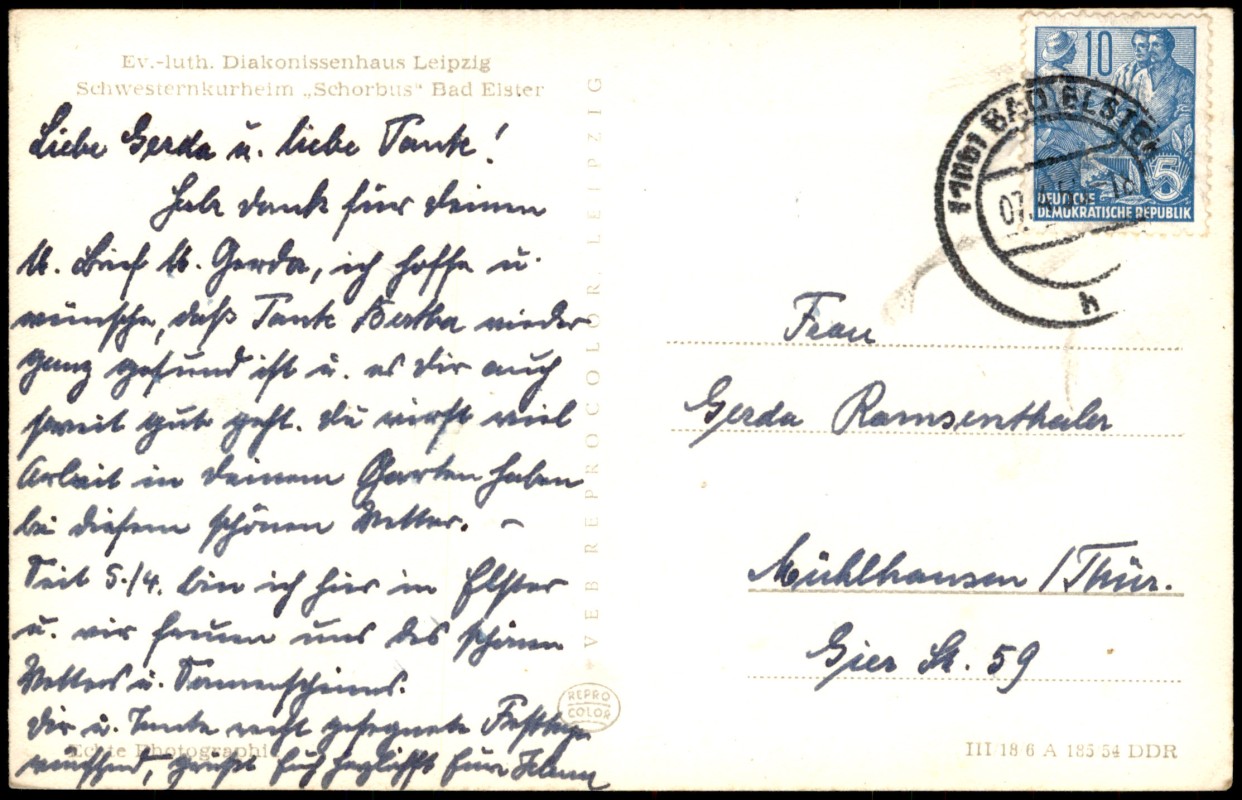 Ev.-luth. Diakonissenhaus Leipzig
Schwesternkurheim „Schorbus“ Bad Elster
Liebe Gerda u. liebe Tante!
Hab Dank für Deinen
lb. Brief lb. Gerda, ich hoffe u.
wünsche, daß Tante Bertha wieder
ganz gesund ist u. es Dir auch
soweit gute geht. Du wirst viel
Arbeit in Deinem Garten haben
bei diesem schönen Wetter. –
Seit 5./4. bin ich hier in Elster
u. wir freuen uns des schönen
Wetters u. Sonnenscheins.
Dir u. Tante recht gesegnete Festtage
wünschend, grüßt Euch herzlichst Eure
Echte Photographie
VEB REPROCOLOR LEIPZIG
REPRO
COLOR
10
5
DEUTSCHE
DEMOKRATISCHE REPUBLIK
BAD ELSTER
h
Frau
Gerda Ramsenthaler
Mühlhausen /Thür.
Gier St. 59
III 18 6 A 185 54 DDR